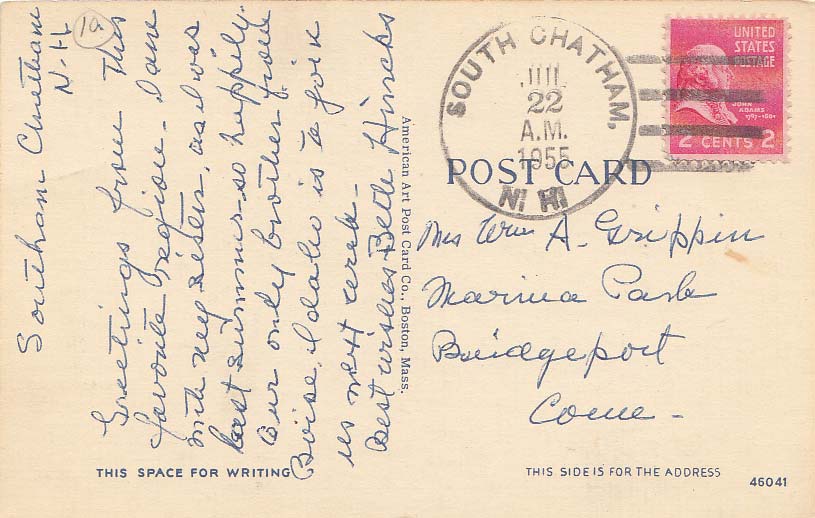 South Chatham
N.H
19
Greetings from this
favorite region - I am
with my sisters, as I was
last summer - so happily.
Our only brother from
Boise, Idaho is to join
us next week -
Best wishes Belle Hincks
American Art Post Card Co., Boston, Mass.
THIS SPACE FOR WRITING
SOUTH CHATHAM,
JUL
22
A.M.
1955
N. H.
UNITED
STATES
POSTAGE
JOHN
ADAMS
1797-1801
2 CENTS 2
POST CARD
Mrs Wm A. Grippin
Marina Park
Bridgeport
Conn -
THIS SIDE IS FOR THE ADDRESS
46041